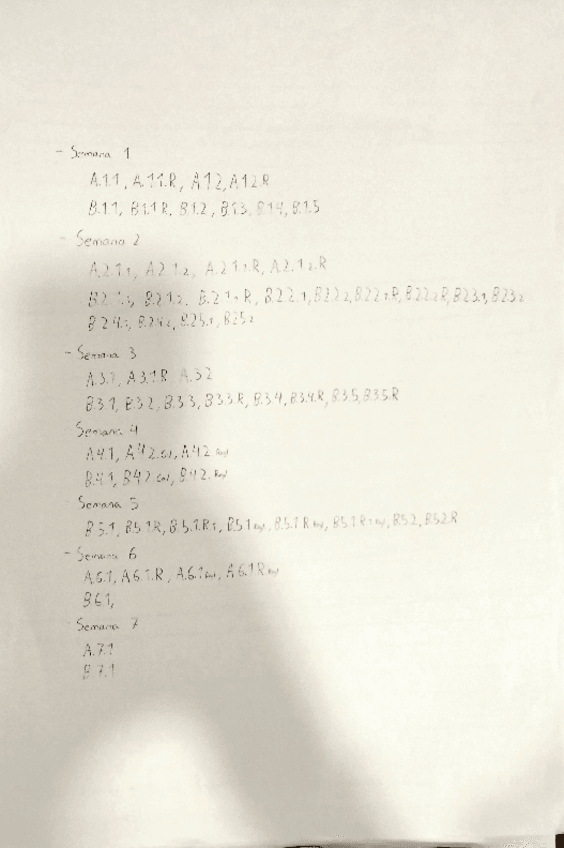 - Semana 1
A.1.1, A.1.1.R, A.1.2, A.1.2.R
B.1.1, B.1.1.R, B.1.2, B.1.3, B.1.4, B.1.5
- Semana 2
A.2.1.1, A.2.1.2, A.2.1.1.R, A.2.1.2.R
B.2.1.1, B.2.1.2, B.2.1.1.R, B.2.2.1, B.2.2.2, B.2.2.1.R, B.2.2.2.R, B.2.3.1, B.2.3.2
B.2.4.1, B.2.4.2, B.2.5.1, B.2.5.2
- Semana 3
A.3.1, A.3.1.R, A.3.2
B.3.1, B.3.2, B.3.3, B.3.3.R, B.3.4, B.3.4.R, B.3.5, B.3.5.R
Semana 4
A.4.1, A.4.2, A.4.2
B.4.1, B.4.2, B.4.2
Semana 5
B.5.1, B.5.1.R, B.5.1.R.1, B.5.1, B.5.1.R, B.5.1.R.1, B.5.2, B.5.2.R
- Semana 6
A.6.1, A.6.1.R, A.6.1, A.6.1.R
B.6.1,
- Semana 7
A.7.1
B.7.1